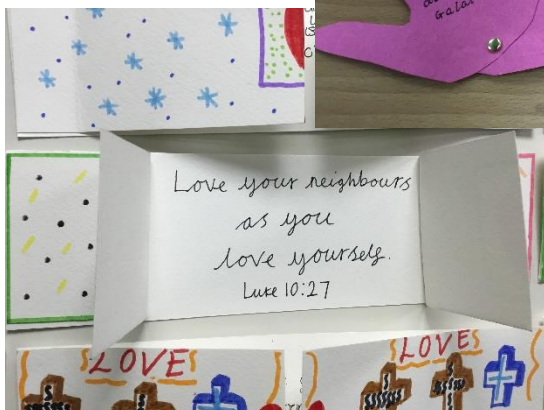 Galat
Love your neighbours
as you
love yourself.
Luke 10:27
LOVE
LOVE